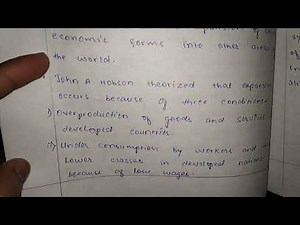 economic forms into other areas
the world.
John A. Hobson theorized that expansion
occurs because of three conditions
1) overproduction of goods and services
developed countries.
2) Under consumption by workers and
Lower classes in developed nations
because of low wages.